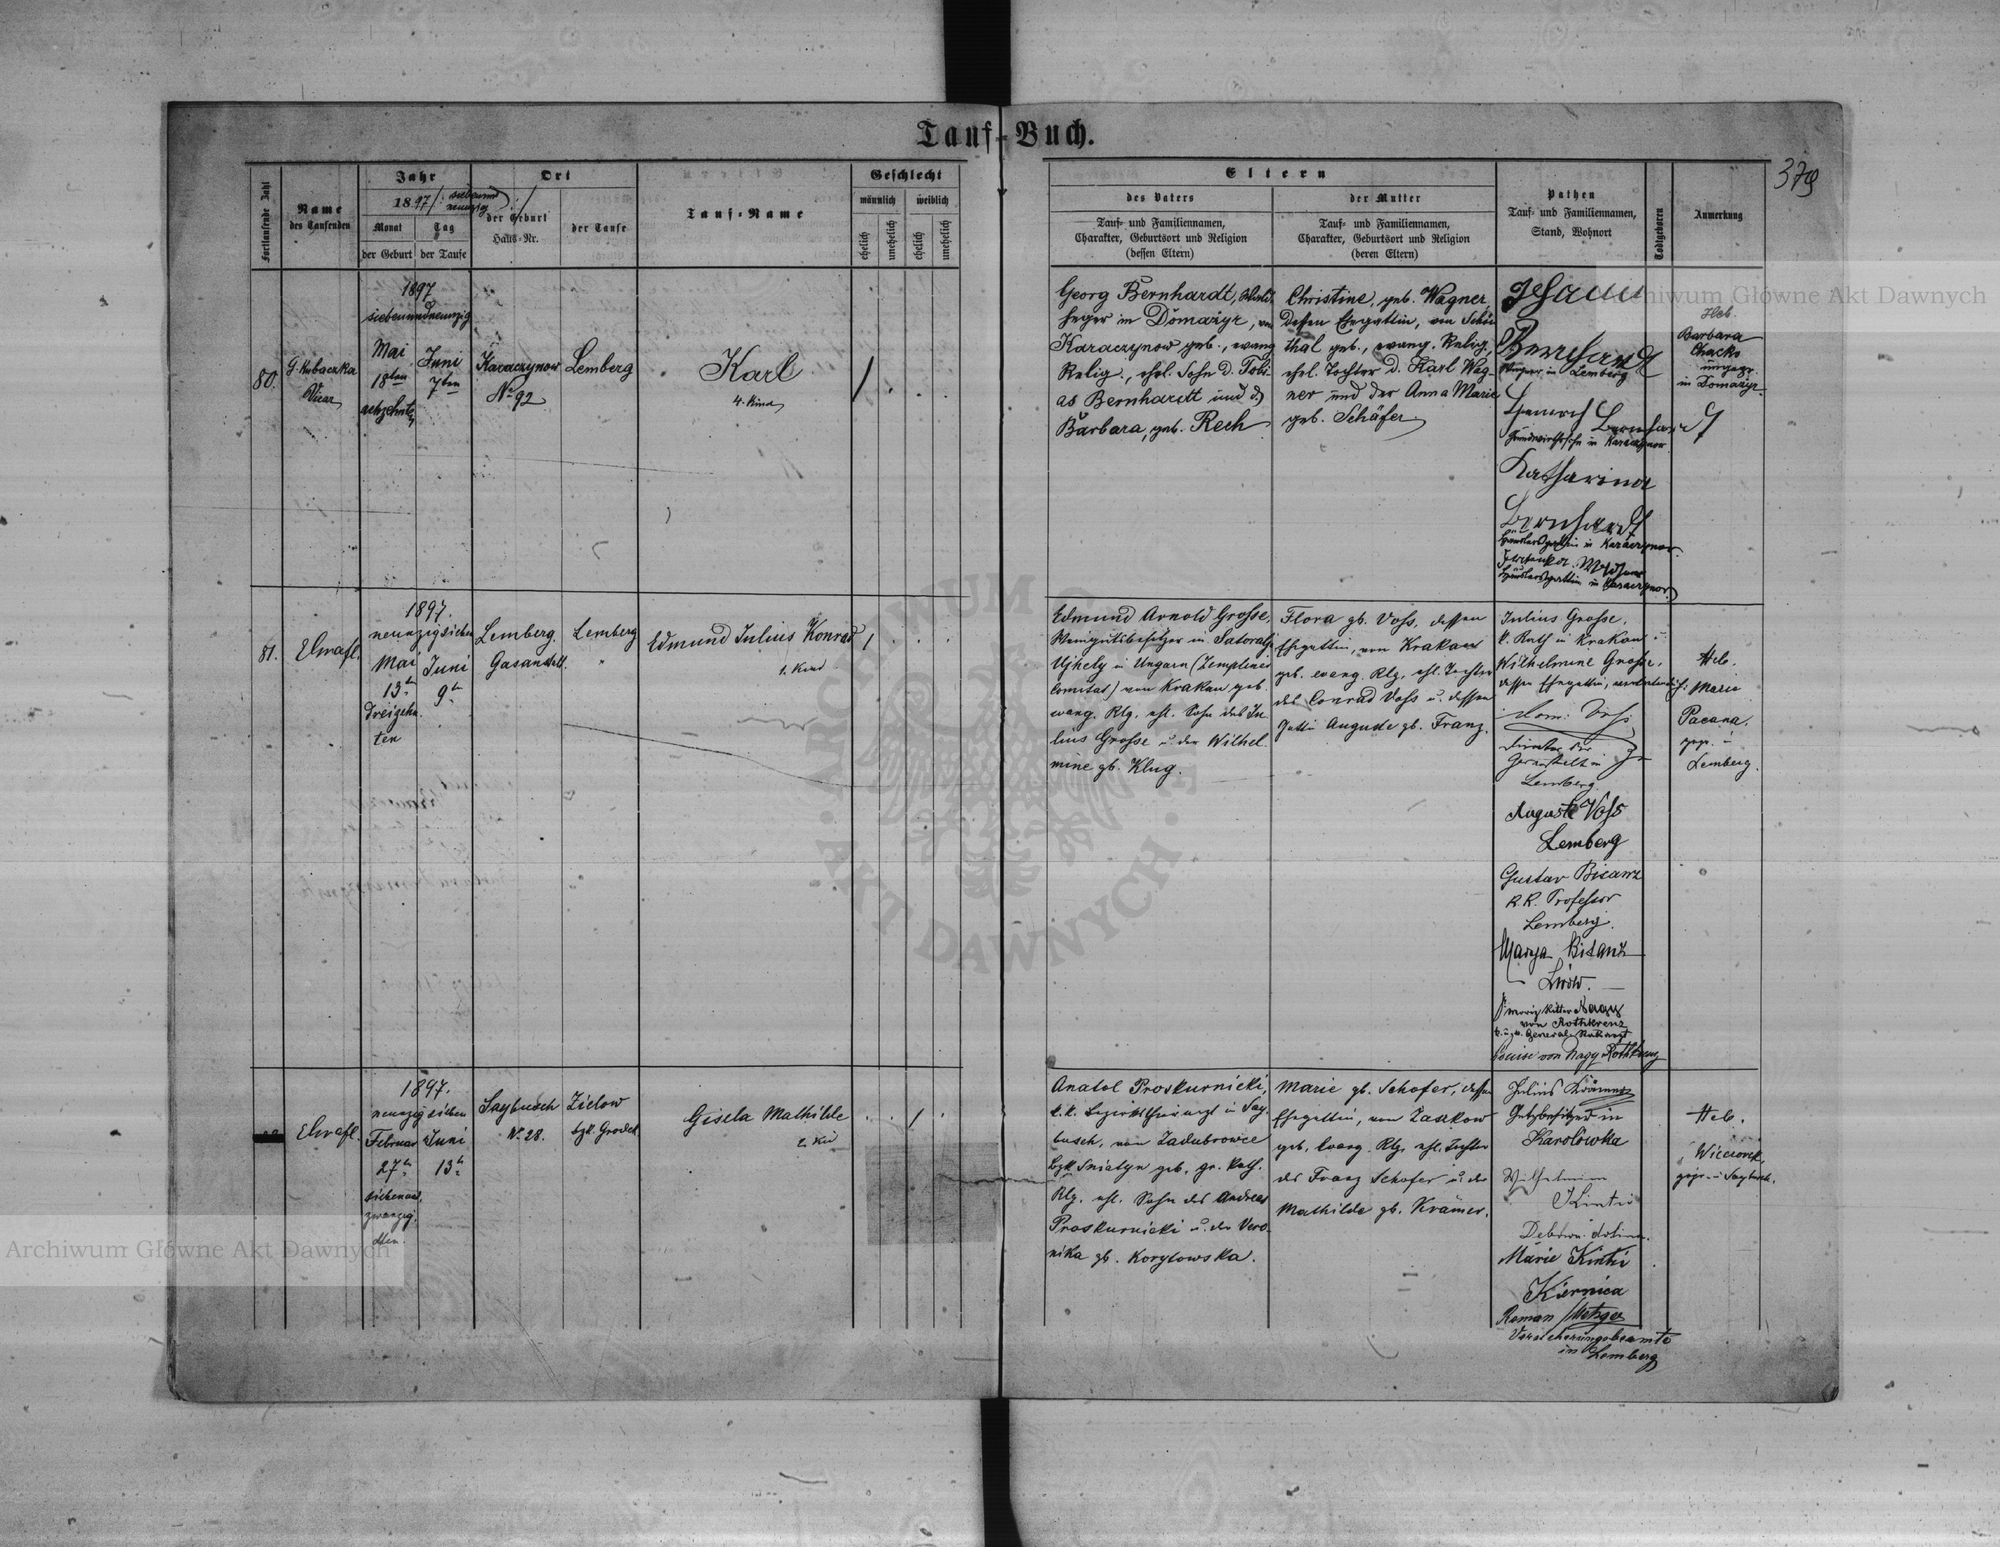 Tauf-Buch.
379
Fortlaufende Zahl
Name
des Taufenden
Jahr
1897/: siebenund
neunzig :/
Monat
Tag
der Geburt
der Taufe
Ort
der Geburt
Haus-Nr.
der Taufe
Tauf-Name
Geschlecht
männlich
weiblich
ehelich
unehelich
ehelich
unehelich
Eltern
des Vaters
Tauf- und Familiennamen,
Charakter, Geburtsort und Religion
(dessen Eltern)
der Mutter
Tauf- und Familiennamen,
Charakter, Geburtsort und Religion
(deren Eltern)
Pathen
Tauf- und Familiennamen,
Stand, Wohnort
Todtgeboren
Anmerkung
80.
G. Kubaczka
Vicar
1897
siebenundneunzig
Mai
18ten
achzehnte
Juni
7ten
Karaczynow
No 92
Lemberg
Karl
4. Kind
Georg Bernhardt, Wald-
heger in Domażyr, von
Karaczynow geb., evang.
Relig., ehel. Sohn d. Tobi-
as Bernhardt und d.
Barbara, geb. Rech
Christine, geb. Wagner,
dessen Ehegattin, von Schön-
thal geb., evang. Relig.,
ehel. Tochter d. Karl Wag-
ner und der Anna Marie
geb. Schäfer
Johann
Bernhardt
in Lemberg
Heinrich Bernhardt
Grundwirthssohn in Karaczynow
Katharina
Bernhardt
in Karaczynow
in Karaczynow
Heb.
Barbara
in Domażyr
81.
Elvafl.
1897.
neunzigsieben
Mai
13t
dreizehn
ten
Juni
9t
Lemberg
Gasanstalt
Lemberg
Edmund Julius Konrad
1. Kind
Edmund Arnold Grosse,
Weingutsbesitzer in Satoralja
Ujhely in Ungarn (Zempliner
Comitat) von Krakau geb.
evang. Rlg. ehl. Sohn des Ju-
lius Grosse u. der Wilhel-
mine gb. Klug.
Flora gb. Voss, dessen
Ehegattin, von Krakau
geb. evang. Rlg. ehl. Tochter
des Conrad Voss u. dessen
Gattin Auguste gb. Franz.
Julius Grosse,
k. Rath in Krakau u.
Wilhelmine Grosse,
dessen Ehegattin,
Voss
Director der
Gasanstalt in
Lemberg
Auguste Voss
Lemberg
Gustav Bisanz
k.k. Professor
Lemberg.
Marya Bisanz
Lwów.
Ritter Nagy
von Rothkreuz
Louise von Nagy Rothkreuz
Heb.
Marie
Pacana,
gepr. in
Lemberg.
Elvafl.
1897.
neunzig sieben
Februar
27t
siebenund
zwanzig
sten
Juni
13t
Saybusch
No 28.
Zielow
bzk. Grodek
Gisela Mathilde
2. Kind
Anatol Proskurnicki,
k.k. Bezirksthierarzt in Say-
busch, von Zadubrowce
bzk. Sniatyn geb. gr. kath.
Rlg. ehl. Sohn des Andreas
Proskurnicki u. der Vero-
nika gb. Korytowska.
Marie gb. Schofer, dessen
Ehegattin, von Zaszkow
geb. evang. Rlg. ehl. Tochter
des Franz Schofer u. der
Mathilde gb. Krämer.
Julius Krämer
Gutsbesitzer in
Karolówka
Wilhelmine
Kintzi
Marie Kintzi
Kiernica
Roman Metzger
Versicherungsbeamte
in Lemberg
Heb.
Wieczorek,
gepr. in Saybusch.
Archiwum Główne Akt Dawnych
Archiwum Główne Akt Dawnych
ARCHIWUM GŁÓWNE · AKT DAWNYCH ·